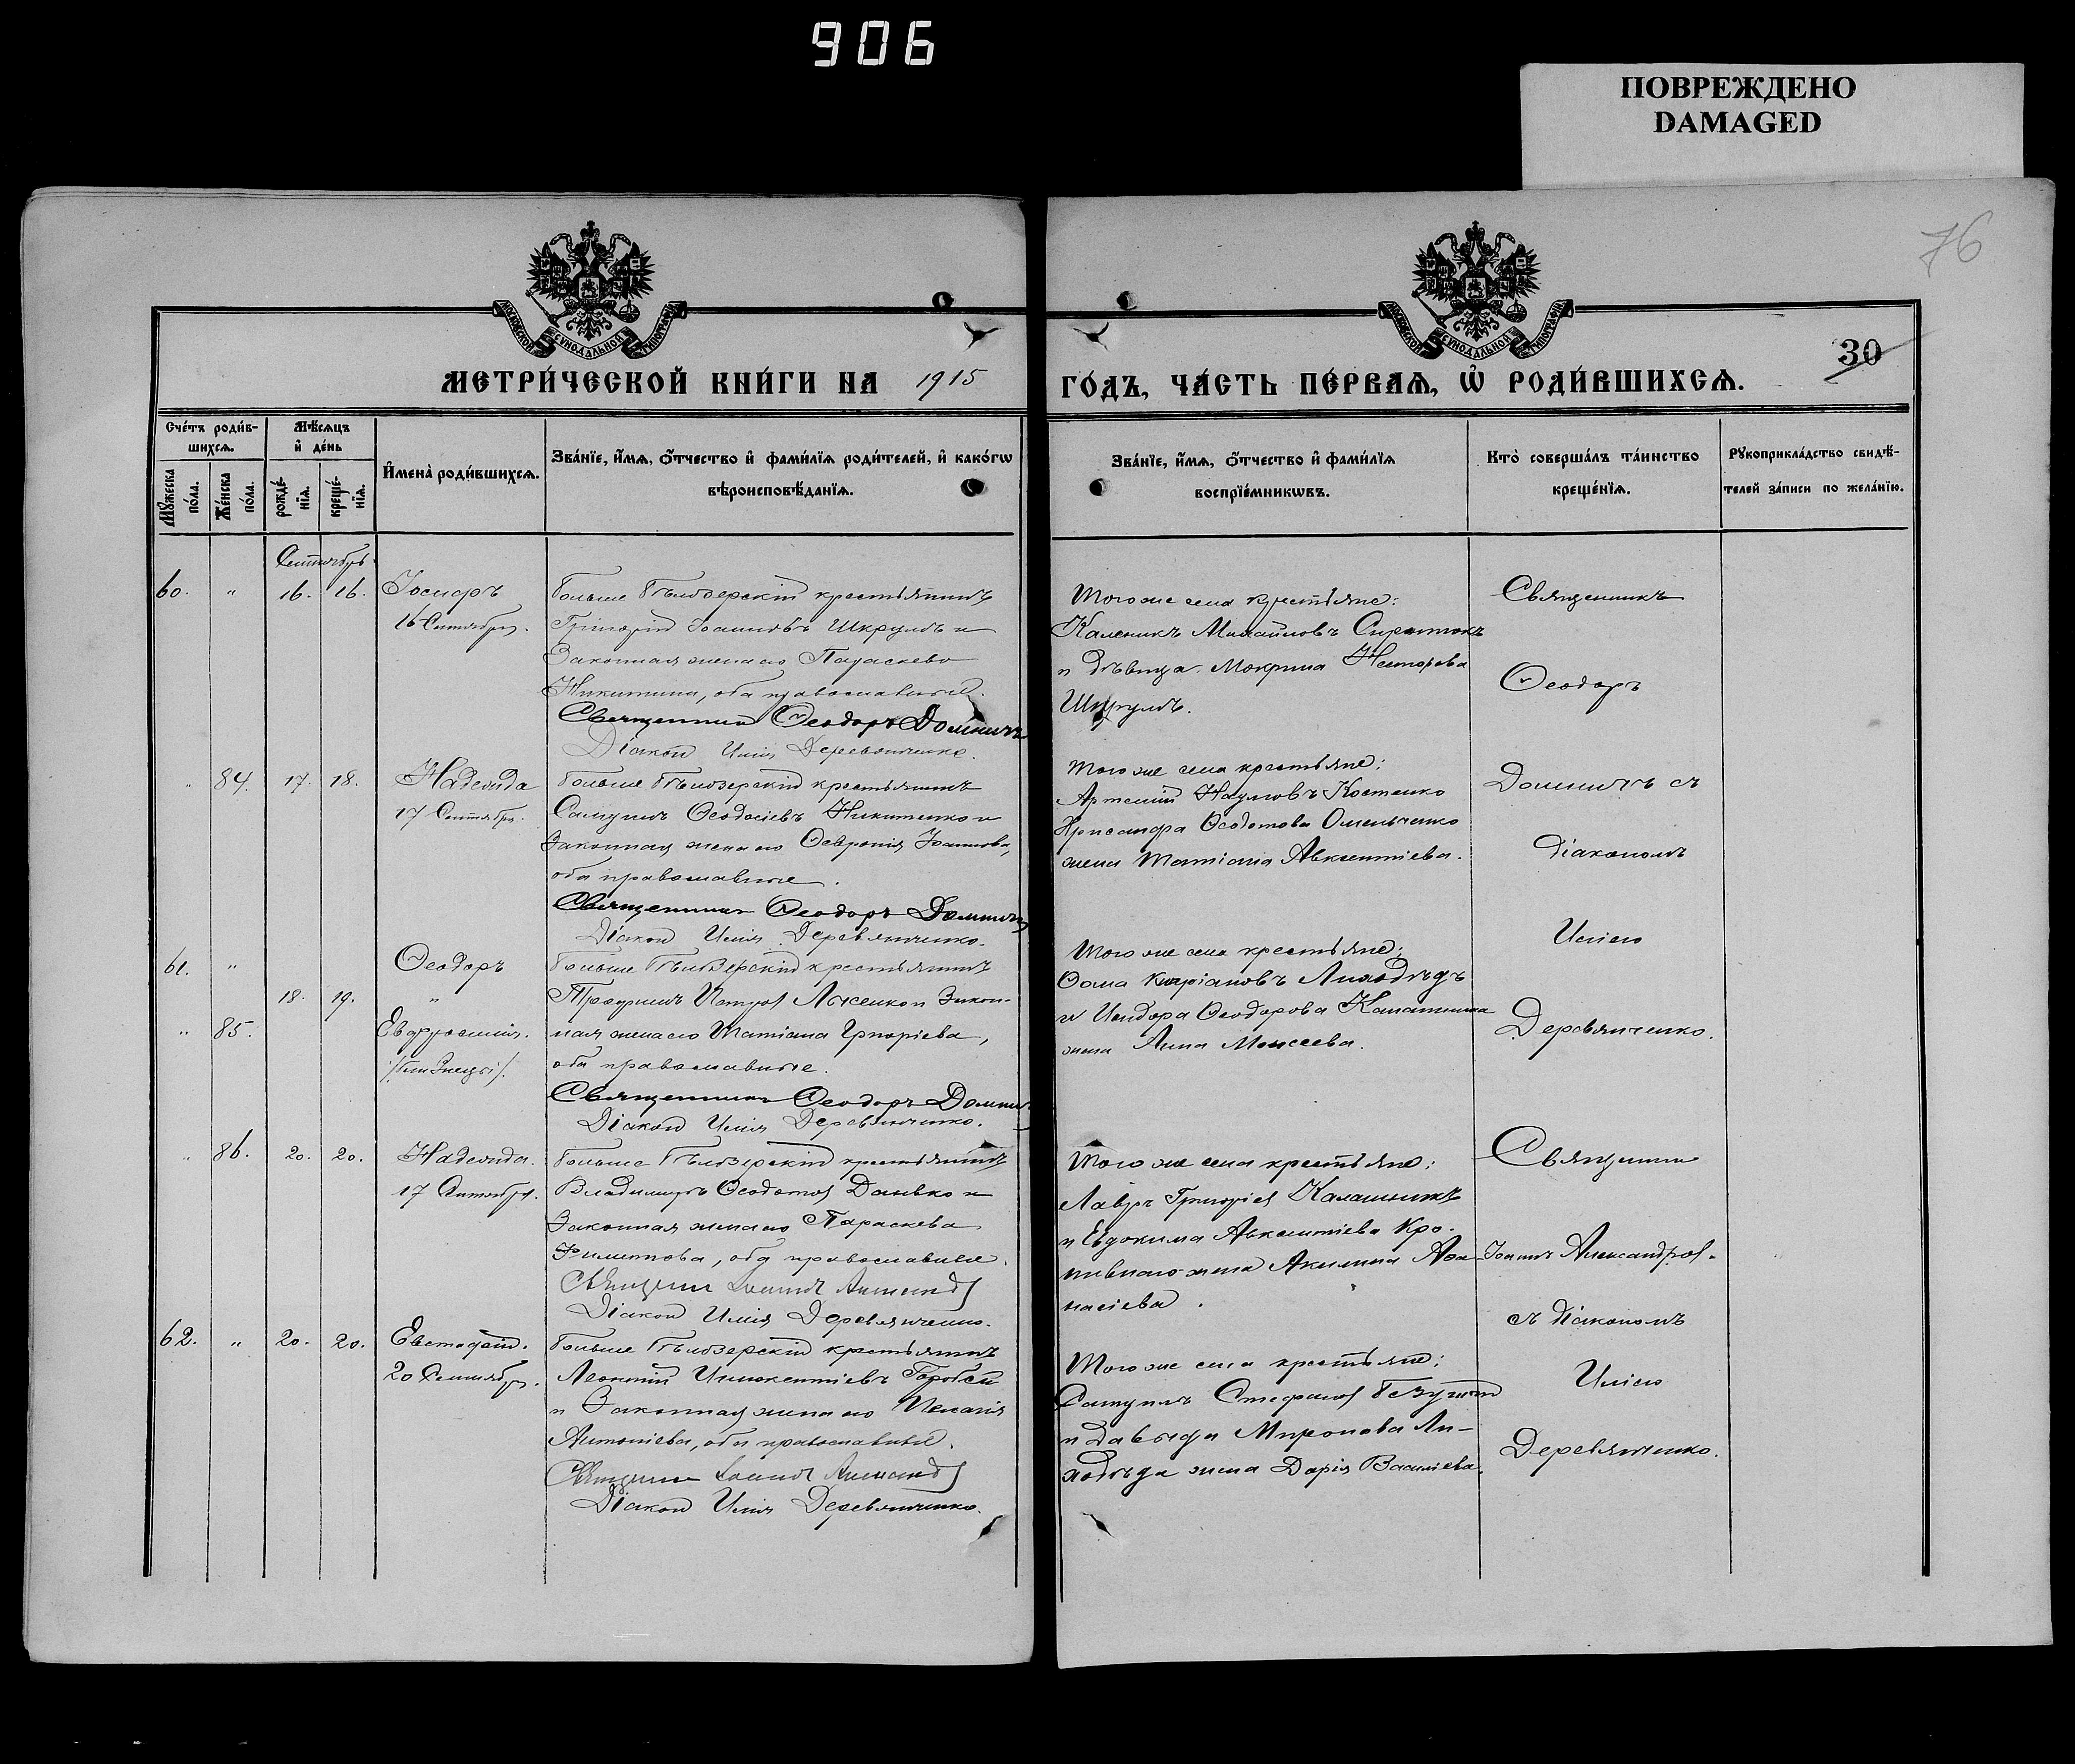 906
ПОВРЕЖДЕНО
DAMAGED
76
МОСКОВСКОЙ СѴНОДАЛЬНОЙ ТИПОГРАФІИ
МОСКОВСКОЙ СѴНОДАЛЬНОЙ ТИПОГРАФІИ
30
МЕТРИ́ЧЕСКОЙ КНИ́ГИ НА 1915 ГО́ДЪ, ЧА́СТЬ ПЕ́РВАѦ, Ѡ҆ РОДИ́ВШИХСѦ.
Сче́тъ роди́в-
шихсѧ.
Мѣ́сѧцъ
и҆ де́нь
Мꙋ́жеска
по́ла.
Же́нска
по́ла.
рожде́-
нїѧ.
креще́-
нїѧ.
И҆мена̀ роди́вшихсѧ.
Зва́нїе, и҆́мѧ, ѻ҆́тчество и҆ фами́лїѧ роди́телей, и҆ како́гѡ
вѣроисповѣ́данїѧ.
Зва́нїе, и҆́мѧ, ѻ҆́тчество и҆ фами́лїѧ
воспрїе́мникѡвъ.
Кто̀ соверша́лъ та́инство
креще́нїѧ.
Рꙋкоприкла́дство свидѣ́-
телей за́писи по жела́нїю.
Сентябрь
60. " 16. 16. Іосифъ
16 Сентября.
Больше Бѣлозерскій крестьянинъ
Григорій Іоанновъ Шкрумъ и
Законная жена его Параскева
Никитина, оба православные.
Священникъ Ѳеодоръ Домничъ
Діаконъ Илія Деревянченко.
Того же села крестьяне:
Каленикъ Михайловъ Сиротюкъ
и дѣвица Мокрина Несторова
Шкрумъ.
Священникъ
Ѳеодоръ
" 84. 17. 18. Надежда
17 Сентября.
Больше Бѣлозерскій крестьянинъ
Самуилъ Ѳеодосіевъ Никитенко и
Законная жена его Ѳевронія Іоаннова,
оба православные.
Священникъ Ѳеодоръ Домничъ
Діаконъ Илія Деревянченко.
Того же села крестьяне:
Артемій Наумовъ Костенко
Ѳеодотова Омельченко
жена Татіана Авксентіева.
Домничъ съ
діакономъ
Иліею
Деревянченко.
61. " Ѳеодоръ
18. 19. "
" 85. Евфросинія.
/близнецы/.
Больше Бѣлозерскій крестьянинъ
Трофимъ Петров Лысенко и Закон-
ная жена его Татіана Григоріева,
оба православные.
Священникъ Ѳеодоръ Домничъ
Діаконъ Илія Деревянченко.
Того же села крестьяне:
Ѳома Кипріановъ Лиходѣдъ
и Исидора Ѳеодорова Калашника
жена Анна Моисеева.
" 86. 20. 20. Надежда.
17 Сентября.
Больше Бѣлозерскій крестьянинъ
Владимиръ Ѳеодотов Данько и
Законная жена его Параскева
Филиппова, оба православные.
Священникъ Іоаннъ Александров
Діаконъ Илія Деревянченко.
Того же села крестьяне:
Лавръ Григоріев Калашникъ
и Евдокима Авксентіева Кро-
пивного жена Акилина Аѳа-
насіева.
Священникъ
Іоаннъ Александров.
съ діакономъ
Иліею
Деревянченко.
62. " 20. 20. Евстафій.
20 Сентября.
Больше Бѣлозерскій крестьянинъ
Леонтій Иннокентіевъ Горобей
и Законная жена его Пелагія
Антоніева, оба православные.
Священникъ Іоаннъ Александров
Діаконъ Илія Деревянченко.
Того же села крестьяне:
Самуилъ Стефанов Безуглый
и Давыда Миронова Ли-
ходѣда жена Дарія Василіева.